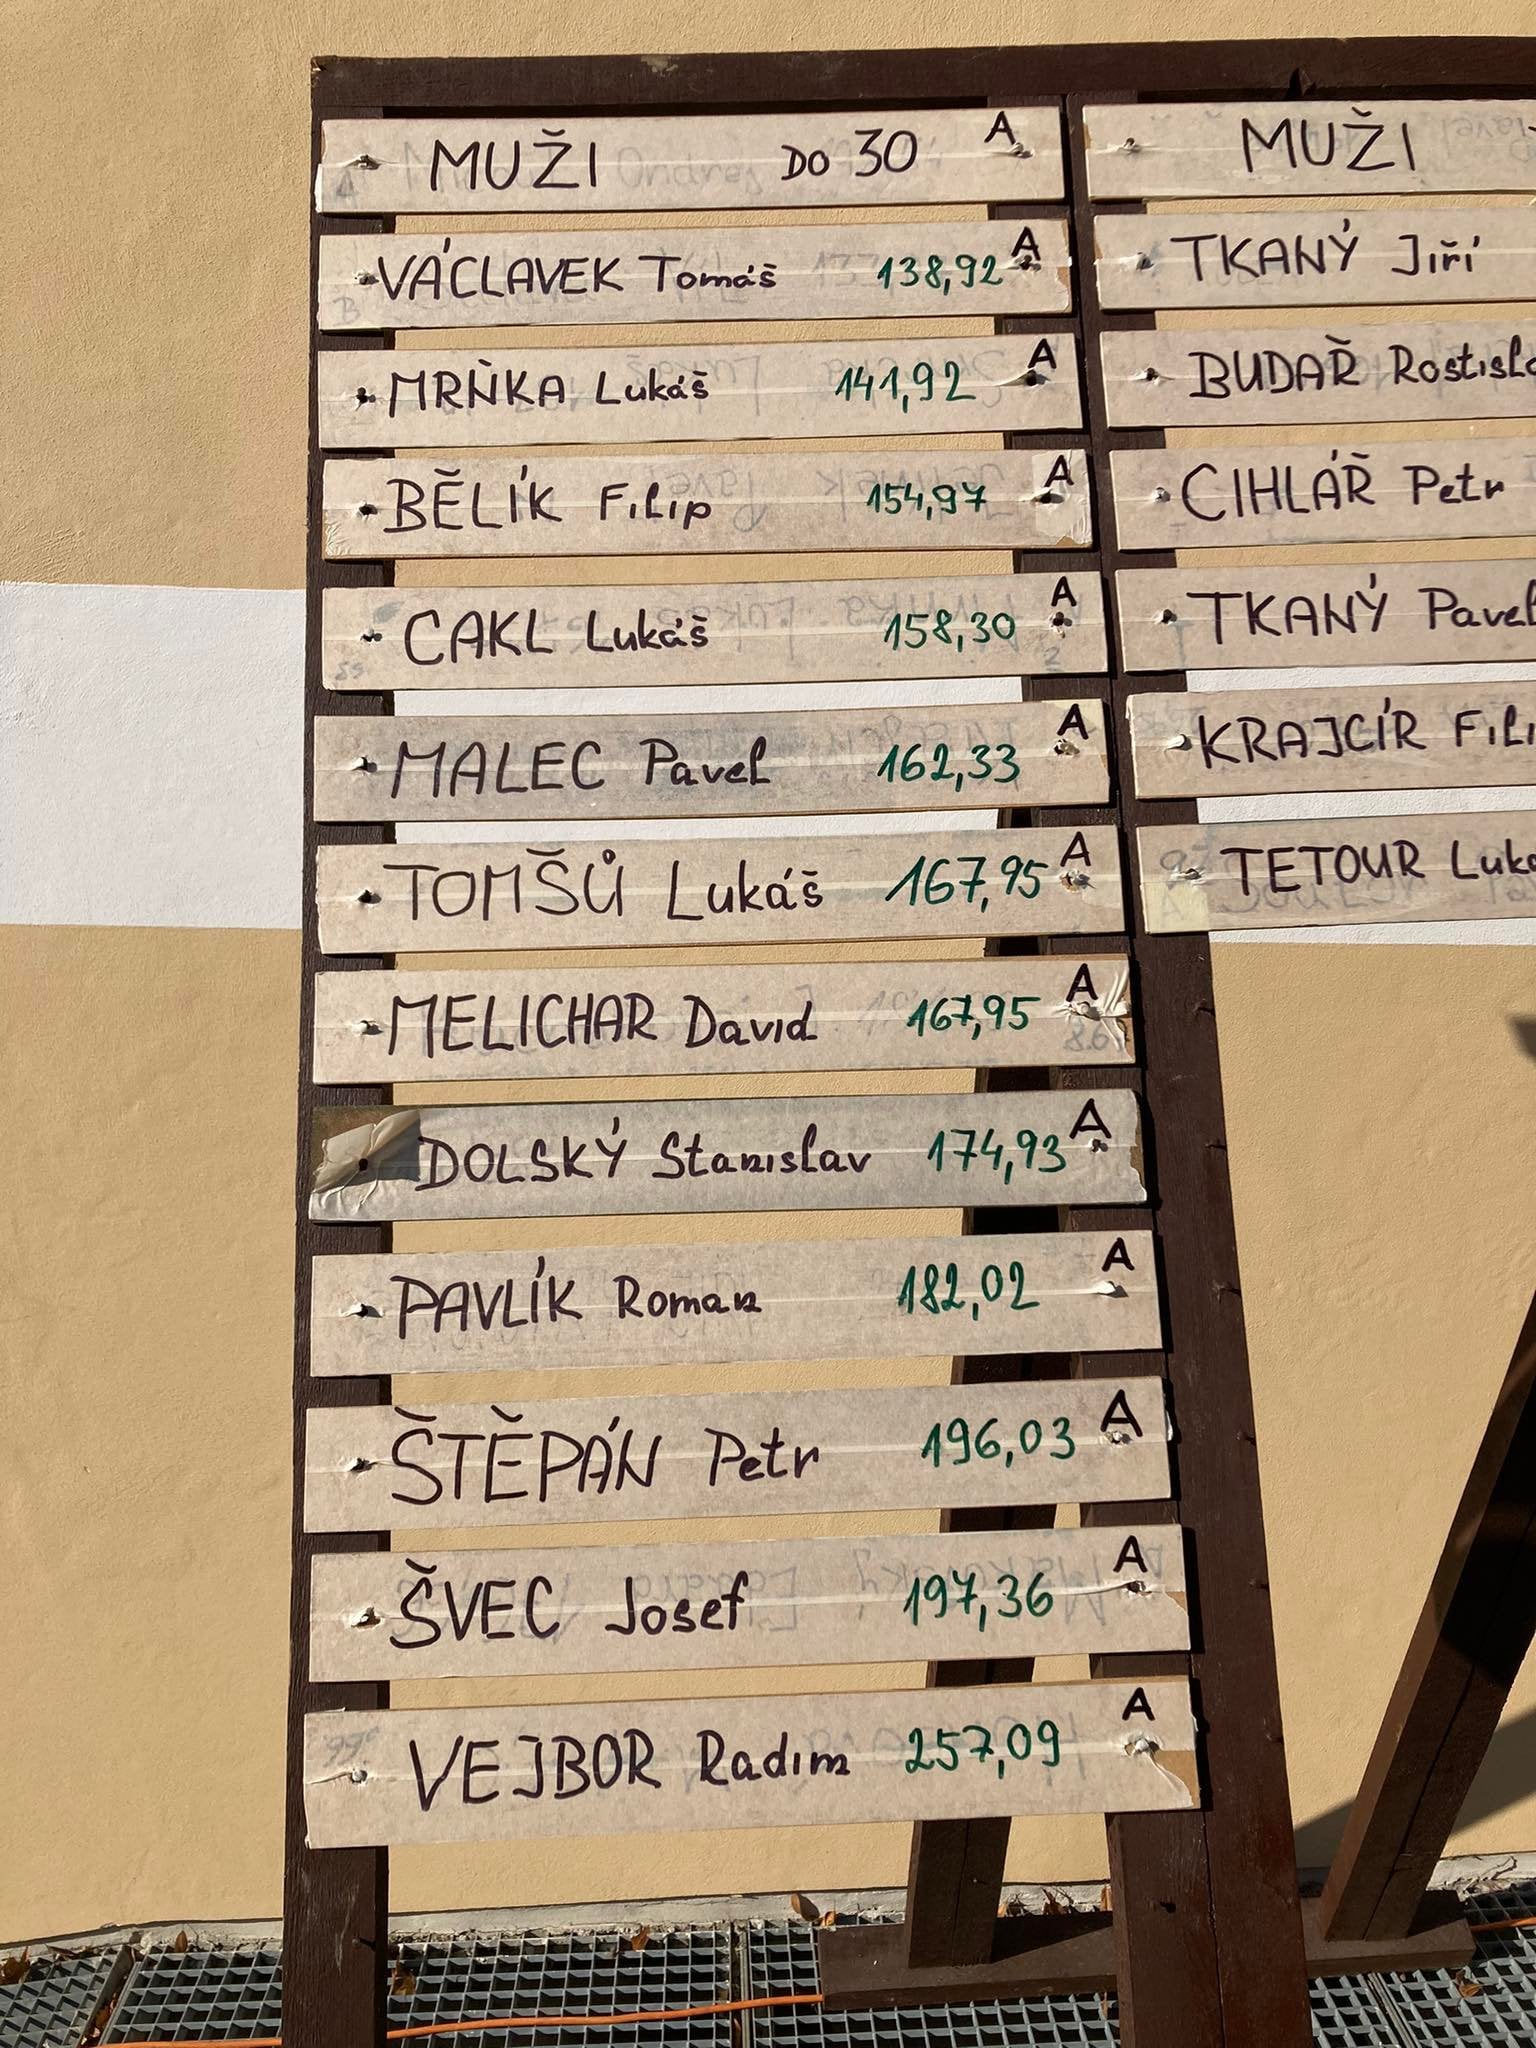 MUŽI DO 30 A
VÁCLAVEK Tomáš 138,92 A
MRŇKA Lukáš 141,92 A
BĚLÍK Filip 154,97 A
CAKL Lukáš 158,30 A
MALEC Pavel 162,33 A
TOMŠŮ Lukáš 167,95 A
MELICHAR David 167,95 A
DOLSKÝ Stanislav 174,93 A
PAVLÍK Roman 182,02 A
ŠTĚPÁN Petr 196,03 A
ŠVEC Josef 197,36 A
VEJBOR Radim 257,09 A
MUŽI
TKANÝ Jiří
BUDAŘ
CIHLÁŘ Petr
TKANÝ Pavel
KRAJCÍR
TETOUR